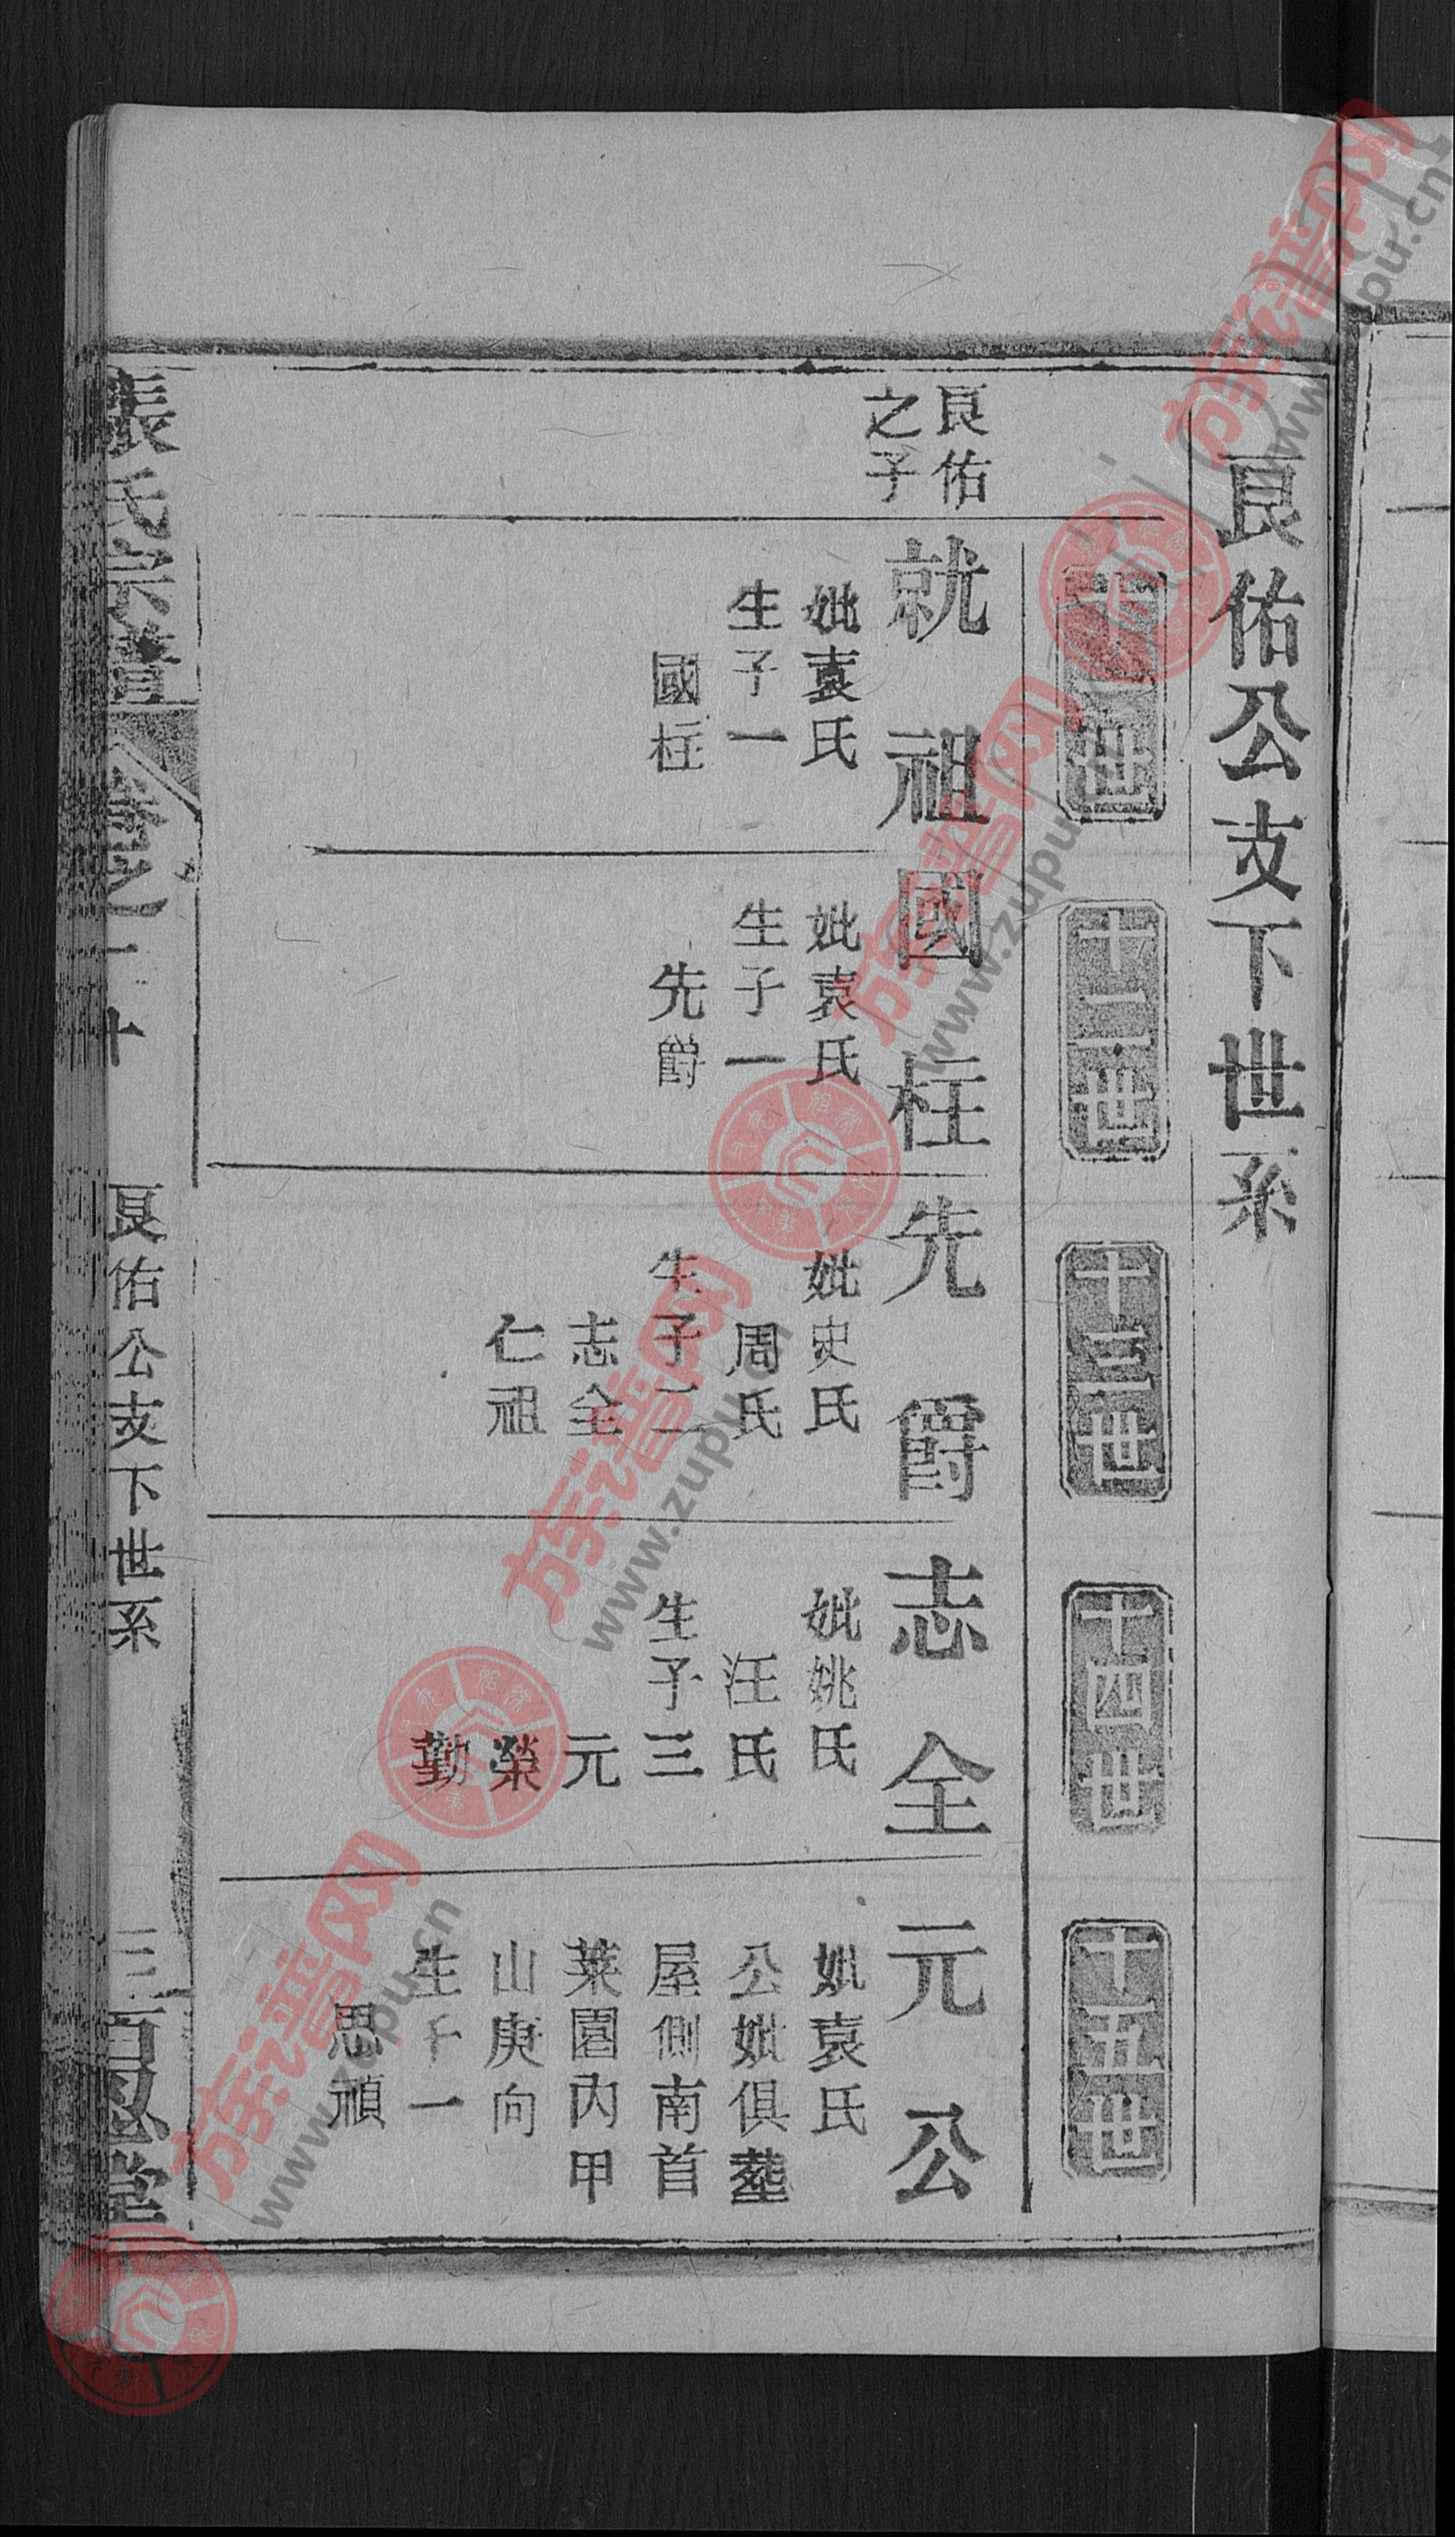 良佑公支下世系
十一世
十二世
十三世
十四世
十五世
良佑
之子
就祖
妣袁氏
生子一
國柱
國柱
妣袁氏
生子一
先爵
先爵
妣史氏
周氏
生子二
志全
仁祖
志全
妣姚氏
汪氏
生子三
元
榮
勤
元公
妣袁氏
公妣俱塟
屋側南首
菜園內甲
山庚向
生子一
思禎
張氏宗譜
卷之二十
良佑公支下世系
三
百忍堂
族谱网
www.zupu.cn
族谱网
www.zupu.cn
族谱网
www.zupu.cn
族谱网
www.zupu.cn